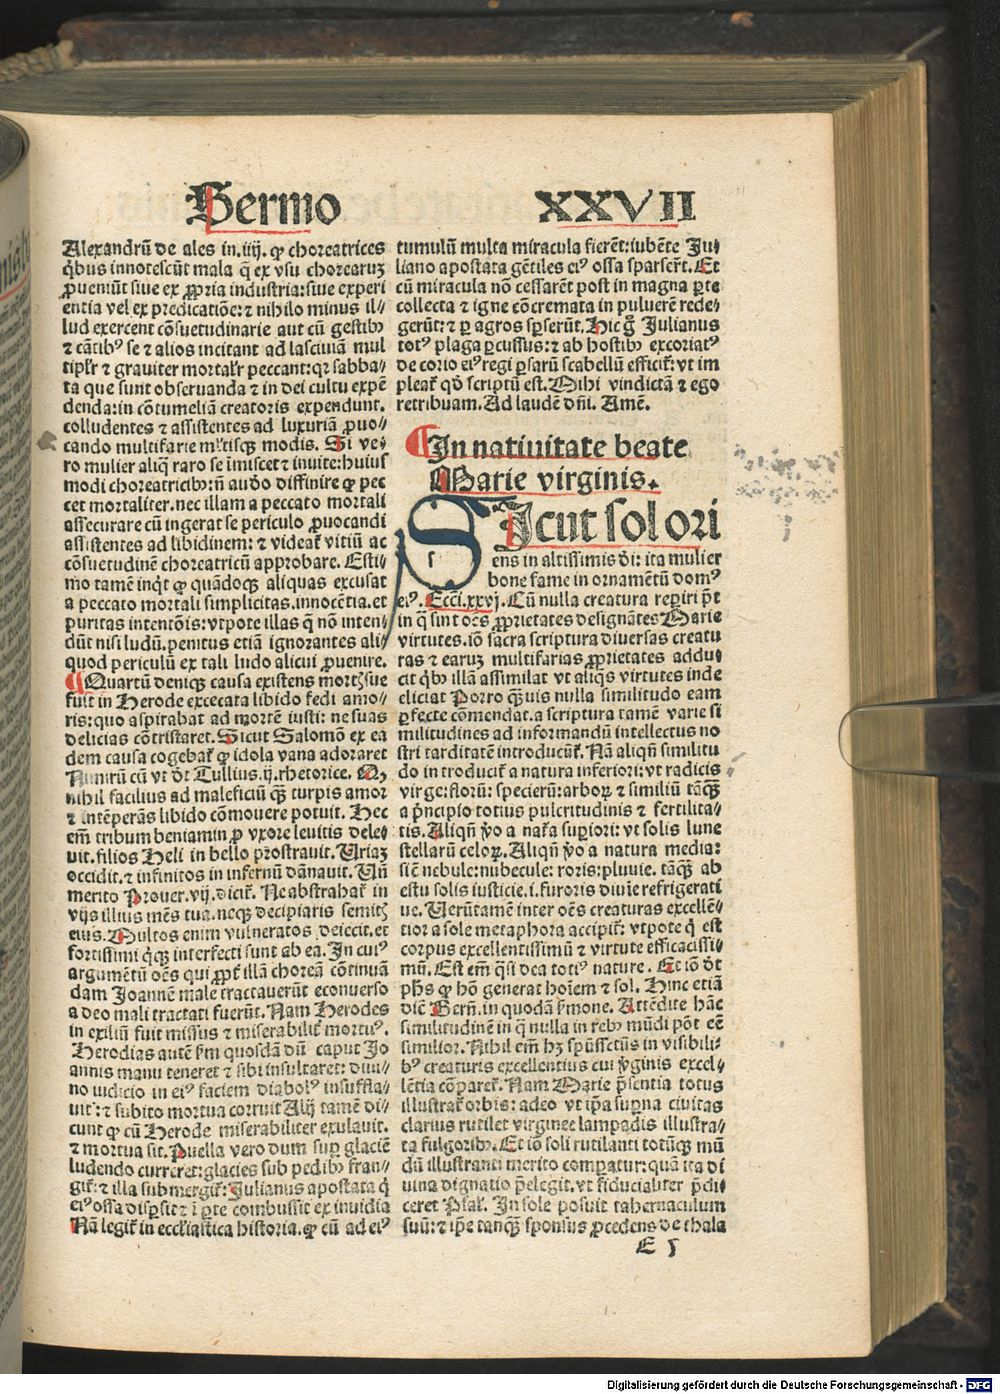 Sermo XXVII
Alexandrū de ales in.iiij. ꝙ choreatrices
q̇bus innotescūt mala q̄ ex vsu chorearuꝫ
ꝓueniūt siue ex ꝓpria industria:siue experi
entia vel ex predicatiōe: ⁊ nihilo minus il⸗
lud exercent cōsuetudinarie aut cū gestibꝰ
⁊ cātibꝰ se ⁊ alios incitant ad lasciuiā mul
tipłr ⁊ grauiter mortałr peccant:qꝛ sabba⸗
ta que sunt obseruanda ⁊ in dei cultu expē
denda:in cōtumeliā creatoris expendunt.
colludentes ⁊ assistentes ad luxuriā ꝓuo⸗
cando multifarie mltisqꝫ modis. Si ve⸗
ro mulier aliq̄ raro se īmiscet ⁊ inuite:huius
modi choreatricibꝰ:n̄ audo diffinire ꝙ pec
cet mortaliter.nec illam a peccato mortali
assecurare cū ingerat se periculo ꝓuocandi
assistentes ad libidinem: ⁊ videat᷑ vitiū ac
cōsuetudinē choreatricū approbare. Esti⸗
mo tamē inq̇t ꝙ quādoqꝫ aliquas excusat
a peccato mortali simplicitas.innocētia.et
puritas intentōis: vtpote illas q̄ nō inten⸗
dūt nisi ludū.penitus etiā ignorantes ali⸗
quod periculū ex tali ludo alicui ꝓuenire.
¶Quartū deniqꝫ causa existens mortꝫsue
fuit in Herode excecata libido fedi amo⸗
ris:quo aspirabat ad mortē iusti: ne suas
delicias cōtristaret. Sicut Salomō ex ea
dem causa cogebat᷑ ꝙ idola vana adoraret
Nimirū cū vt d̄t Tullius.ij.rhetorice. Q,
nihil facilius ad maleficiū qꝫ turpis amor
⁊ intēperās libido cōmouere potuit. Hec
em̄ tribum beniamin ꝓ vxore leuitis dele⸗
uit.filios Heli in bello prostrauit. Uriaꝫ
occidit.⁊ infinitos in infernū dānauit. Un̄
merito Prouer.vij.dicit᷑. Ne abstrahat᷑ in
vijs illius mēs tua.neqꝫ decipiaris semitꝫ
eius. Multos enim vulneratos deiecit.et
fortissimi q̇qꝫ interfecti sunt ab ea. In cuiꝰ
argumētū oēs qui ꝓpt᷑ illā choreā cōtinuā
dam Joannē male tractauerūt econuerso
a deo mali tractati fuerūt. Nam Herodes
in exiliū fuit missus ⁊ miserabilit᷑ mortuꝰ.
Herodias autē ẜm quosdā dū caput Jo
annis manu teneret ⁊ sibi insultaret: diui⸗
no iudicio in eiꝰ faciem diabolꝰ insuffla⸗
uit: ⁊ subito mortua corruit Alij tamē di⸗
cunt ꝙ cū Herode miserabiliter exulauit.
⁊ mortua sit. Puella vero dum suꝑ glaciē
ludendo curreret:glacies sub pedibꝰ fran⸗
git᷑: ⁊ illa submergit᷑: Julianus apostata q̇
eiꝰ ossa disꝑsit: ⁊ ī ꝑte combussit ex inuidia
Nā legit᷑ in eccliastica historia.ꝙ cū ad eiꝰ
tumulū multa miracula fierēt:iubēte Ju⸗
liano apostata gētiles eiꝰ ossa sparserūt. Et
cū miracula nō cessarēt post in magna ꝑte
collecta ⁊ igne cōcremata in puluerē rede⸗
gerūt: ⁊ ꝑ agros sꝑserūt. Hic g̊ Julianus
totꝰ plaga ꝑcussus: ⁊ ab hostibꝰ excoriatꝰ
de corio eiꝰ regi ꝑsarū scabellū efficit᷑: vt im
pleat᷑ qd̄ scriptū est. Mihi vindictā ⁊ ego
retribuam. Ad laudē dn̄i. Amē.
¶In natiuitate beate
Marie virginis.
SIcut sol ori
ens in altissimis di: ita mulier
bone fame in ornamētū domꝰ
eiꝰ. Ecci.xxvj. Cū nulla creatura reꝑiri pt̄
in q̄ sint oēs ꝓprietates designātes Marie
virtutes.iō sacra scriptura diuersas creatu
ras ⁊ earuꝫ multifarias ꝓprietates addu⸗
cit q̇bꝰ illā assimilat vt aliq̄s virtutes inde
eliciat Porro qꝫuis nulla similitudo eam
ꝑfecte cōmendat.a scriptura tamē varie si
militudines ad informandū intellectus no
stri tarditatē introducūt᷑. Nā aliqn̄ similitu
do introducit᷑ a natura inferiori: vt radicis
virge:florū: specierū:arboꝝ ⁊ similiū tāqꝫ
a pͥncipio totius pulcritudinis ⁊ fertilita⸗
tis. Aliqn̄ ꝟo a nat᷑a suꝑiori: vt solis lune
stellarū celoꝝ. Aliqn̄ ꝟo a natura media:
sic̄ nebule: nubecule: roris:pluuie. tāqꝫ ab
estu solis iusticie.i.furoris diuīe refrigerati
ue. Uerūtamē inter oēs creaturas excellē⸗
tior a sole metaphora accipit᷑: vtpote q̄ est
corpus excellentissimū ⁊ virtute efficacissi⸗
mū. Est em̄ q̄si dea totiꝰ nature. Et iō d̄t
phs ꝙ hō generat hoīem ⁊ sol. Hinc etiā
dic̄ Bern̄. in quodā ẜmone. Attēdite hāc
similitudinē in q̄ nulla in rebꝰ mūdi pōt eē
similior. Nihil em̄ hꝫ spūssctūs in visibili⸗
bꝰ creaturis excellentius cui ꝟginis excel⸗
lētia cōparet᷑. Nam Marie pn̄sentia totus
illustrat᷑ orbis: adeo vt ip̄a suꝑna ciuitas
clarius rutilet virginee lampadis illustra⸗
ta fulgoribꝰ. Et iō soli rutilanti totūqꝫ mū
dū illustranti merito comꝑatur:quā ita di
uina dignatio p̄elegit.vt fiducialiter p̄di⸗
ceret Psal᷑. In sole posuit tabernaculum
suū: ⁊ ip̄e tanqꝫ sponsus ꝓcedens de thala
E 5
Digitalisierung gefördert durch die Deutsche Forschungsgemeinschaft - DFG